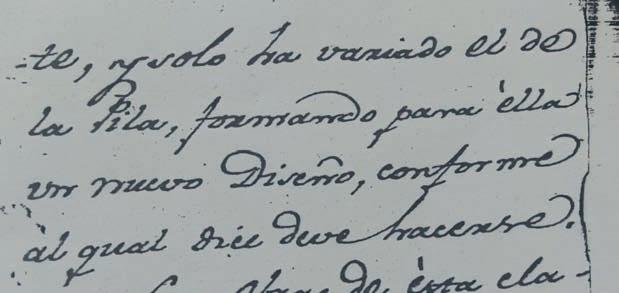 -te, y solo ha variado el de
la Pila, formando para èlla
un nuevo Diseño, conforme
àl qual dice deve hacerse.
de èsta cla-